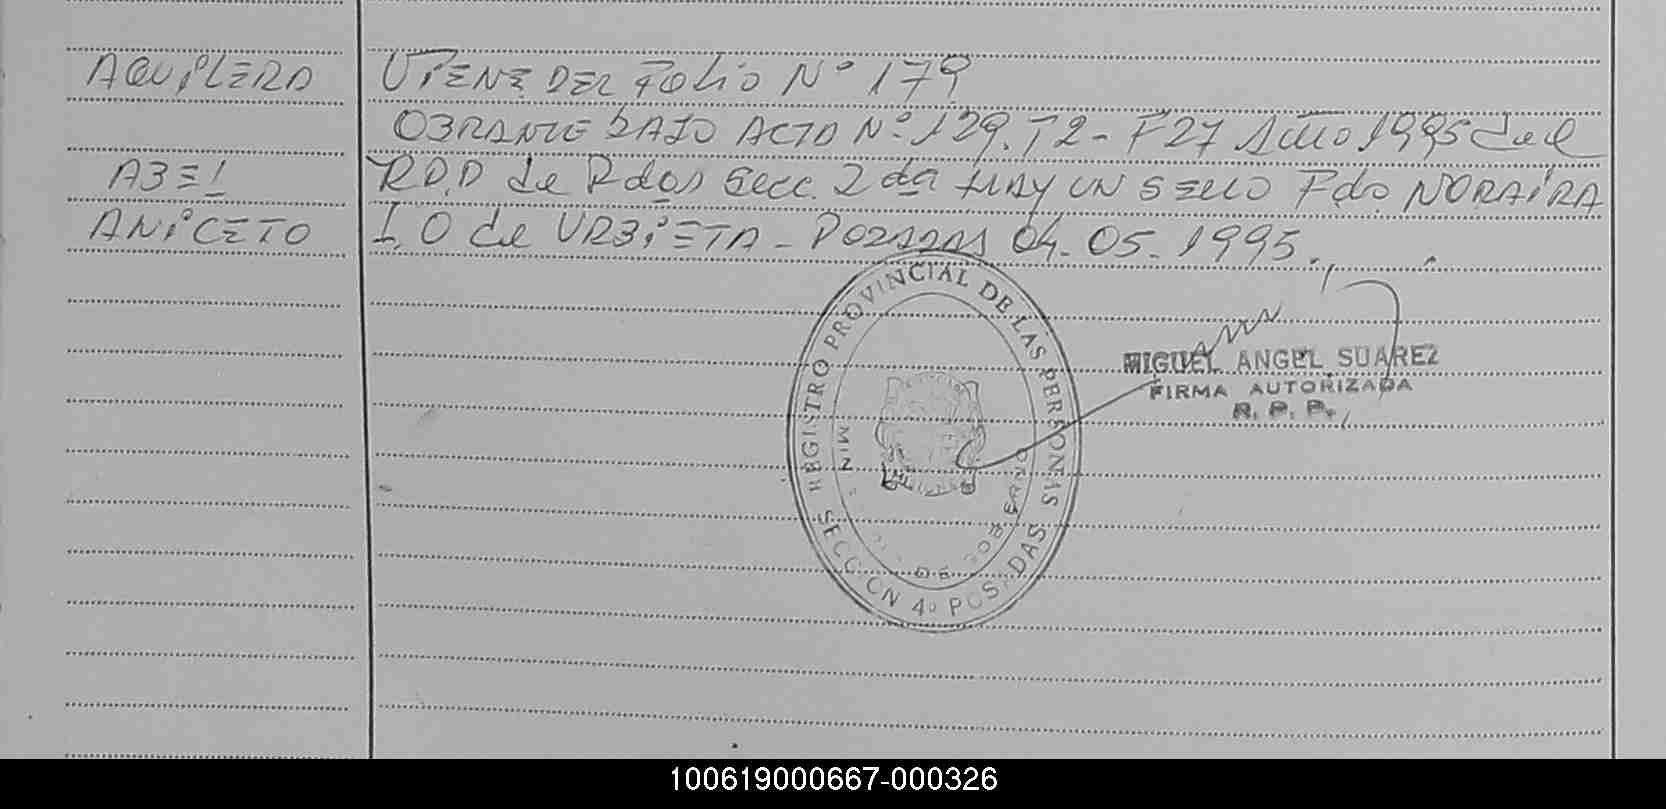 AQUILERA VIENE DEL FOLIO Nº 179
OBRANTE BAJO ACTA Nº 129. T2 - F27 Año 1995 del
ABEL R.D.D de Pdas Secc. 2da HAY UN SELLO Fdo NORA IRA
ANICETO I. O de URBIETA - POSADAS 04.05.1995.
REGISTRO PROVINCIAL DE LAS PERSONAS
SECCION 4º POSADAS
MIGUEL ANGEL SUAREZ
FIRMA AUTORIZADA
R. P. P.
100619000667-000326